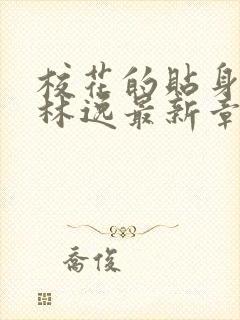 校花的贴身
林逸最新章
乔俊